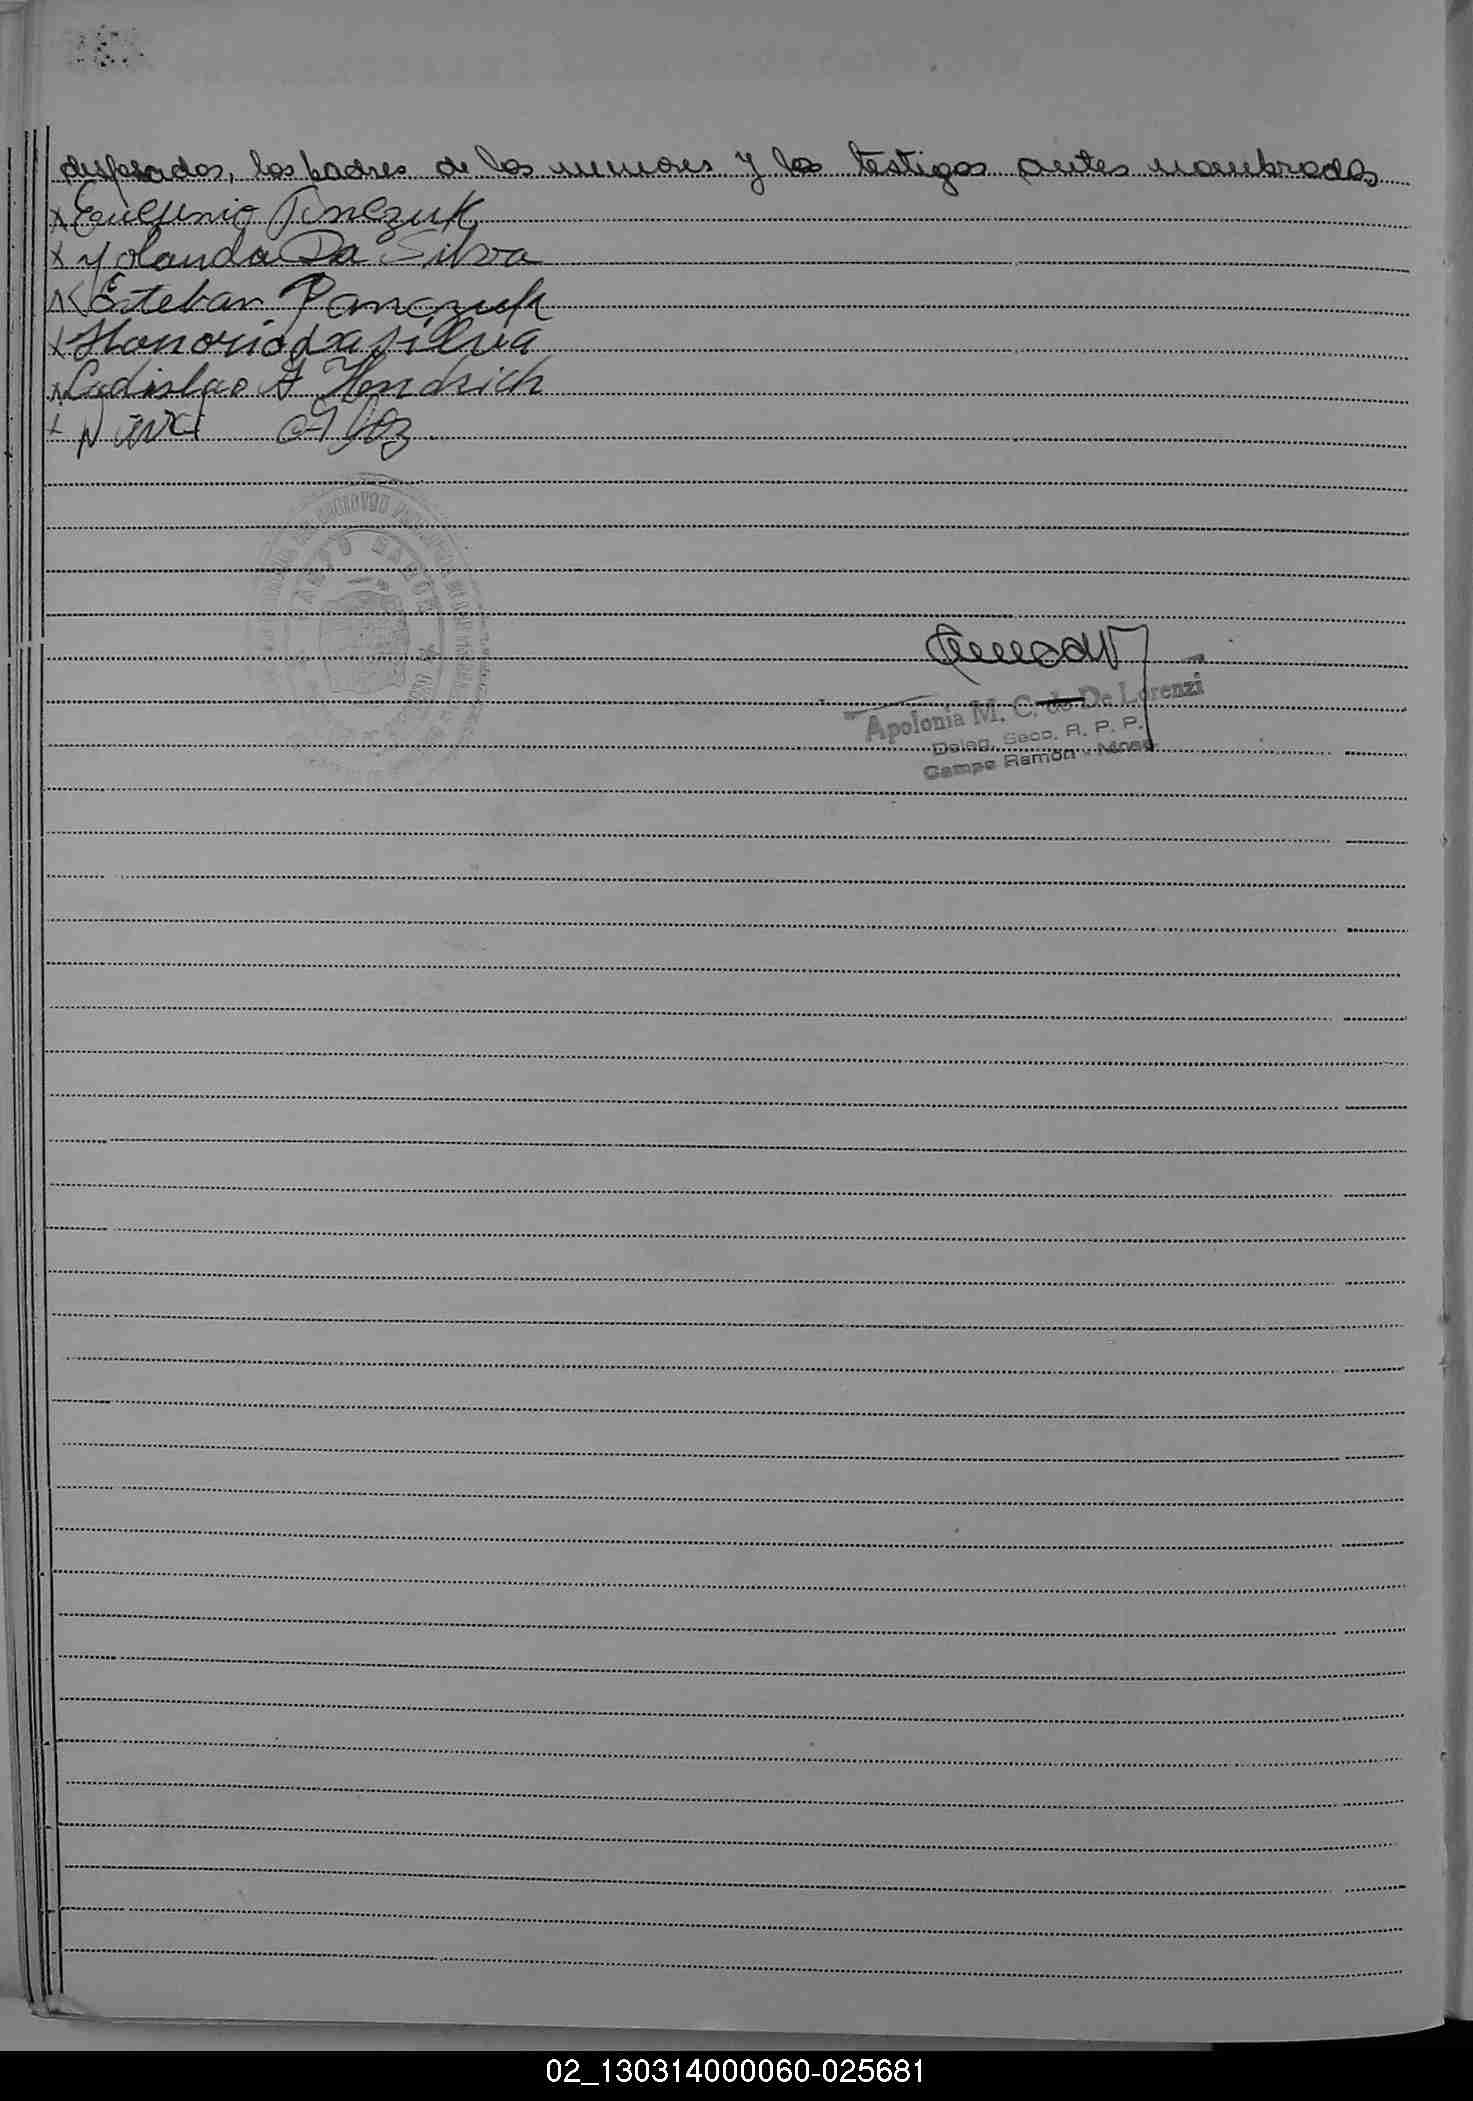 desposados, los padres de los menores y los testigos antes nombrados
x Eugenio Panczuk
x Yolanda Da Silva
x Esteban Panczuk
x Honorio da silva
x Ladislao A Hendrich
x
CAMPO RAMON
Apolonia M. C. de De Lorenzi
Deleg. Secc. R. P. P.
Campo Ramón - Mnes.
02_130314000060-025681